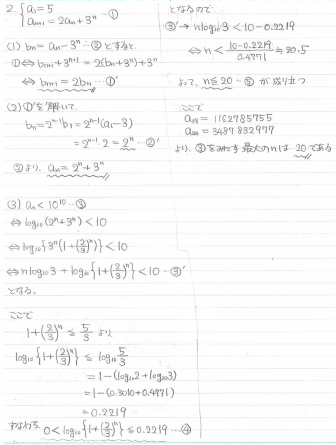 2. { a₁ = 5
aₙ₊₁ = 2aₙ + 3ⁿ …①
(1) bₙ = aₙ − 3ⁿ …② とすると
① ⇔ bₙ₊₁ + 3ⁿ⁺¹ = 2(bₙ + 3ⁿ) + 3ⁿ
⇔ bₙ₊₁ = 2bₙ …①'
(2) ①'を解いて
bₙ = 2ⁿ⁻¹b₁ = 2ⁿ⁻¹(a₁ − 3)
= 2ⁿ⁻¹・2 = 2ⁿ …②'
②より、aₙ = 2ⁿ + 3ⁿ
(3) aₙ < 10¹⁰ …③
⇔ log₁₀(2ⁿ + 3ⁿ) < 10
⇔ log₁₀{3ⁿ(1 + (2/3)ⁿ)} < 10
⇔ n log₁₀3 + log₁₀{1 + (2/3)ⁿ} < 10 …③'
となる。
ここで
1 + (2/3)ⁿ ≦ 5/3 より
log₁₀{1 + (2/3)ⁿ} ≦ log₁₀ 5/3
= 1 − (log₁₀2 + log₁₀3)
= 1 − (0.3010 + 0.4771)
= 0.2219
すなわち 0 < log₁₀{1 + (2/3)ⁿ} ≦ 0.2219 …④
となるので
③' → n log₁₀3 < 10 − 0.2219
⇔ n < (10 − 0.2219)/0.4771 ≒ 20.5
よって、n ≦ 20 …⑤ が成り立つ
ここで
a₁₉ = 1162785755
a₂₀ = 3487832977
より、③をみたす最大のnは 20である